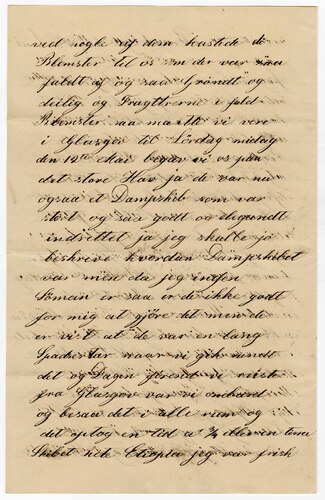 ved nogle af dem kastede de
Blomster til os en der var saa
fuldt af og saa Grøndt og
deilig og Frugttrerne i fuld
Blomster saa maatte vi vere
i Glasgov til Lördag midag
den 19de Mai begav vi os paa
det store Hav ja de var nu
ogsaa et Dampskib som var
stort og saa godt og elegandt
indrettet ja jeg skulle jo
beskreve hvordan Dampskibet
var men da jeg ingen
Söman er saa er de ikke godt
for mig at gjöre det men de
er vist at de var en lang
Spadsertur naar vi gik rundt
det og Dagen vi reiste
fra Glasgov var vi ombord
og besaa det i alle rum og
det optog en tid a 3/4 eller en time
Skibet hek Etiopia jeg var frisk